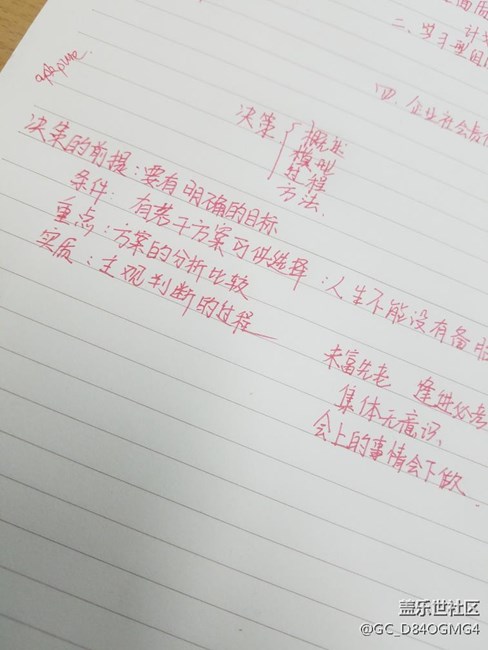 二、学习型组
四、企业社会责
决策
概述
模型
过程
方法
决策的前提：要有明确的目标
条件：有若干方案可供选择：人生不能没有备胎
重点：方案的分析比较
实质：主观判断的过程
未富先老 逢进必考
集体无意识
会上的事情会下做
盖乐世社区
@GC_D84OGMG4